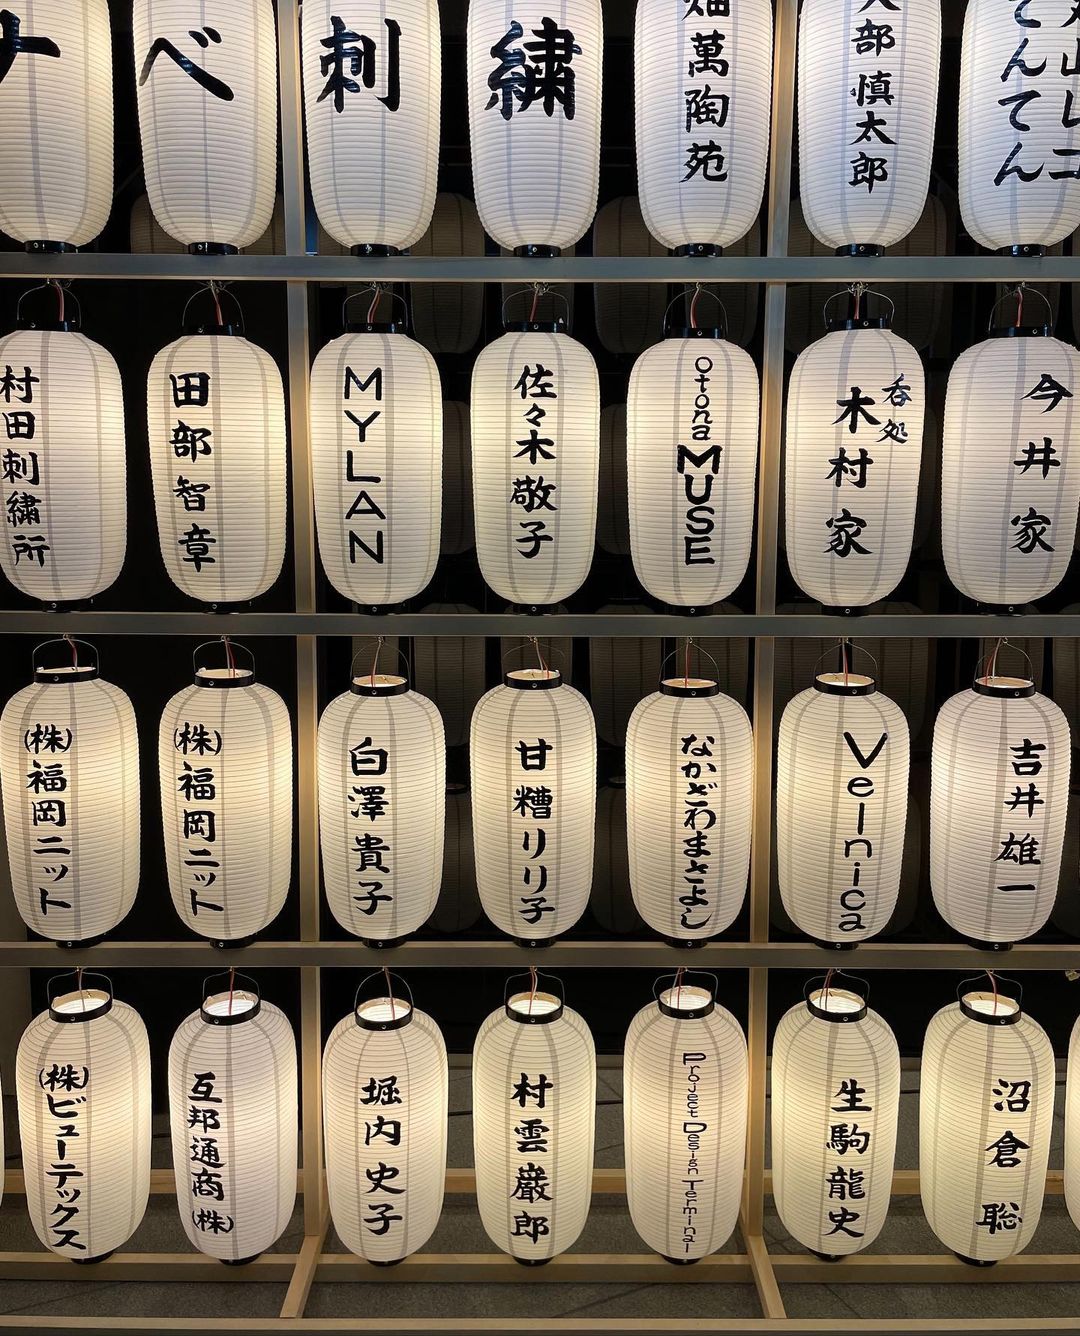 べ
刺
繍
畑萬陶苑
部慎太郎
てんてん
山レコ
村田刺繍所
田部智章
MYLAN
佐々木敬子
otona MUSE
呑処
木村家
今井家
(株)福岡ニット
(株)福岡ニット
白澤貴子
甘糟りり子
なかざわまさよし
Velnica
吉井雄一
(株)ビューテックス
互邦通商(株)
堀内史子
村雲巌郎
Project Design Terminal
生駒龍史
沼倉聡